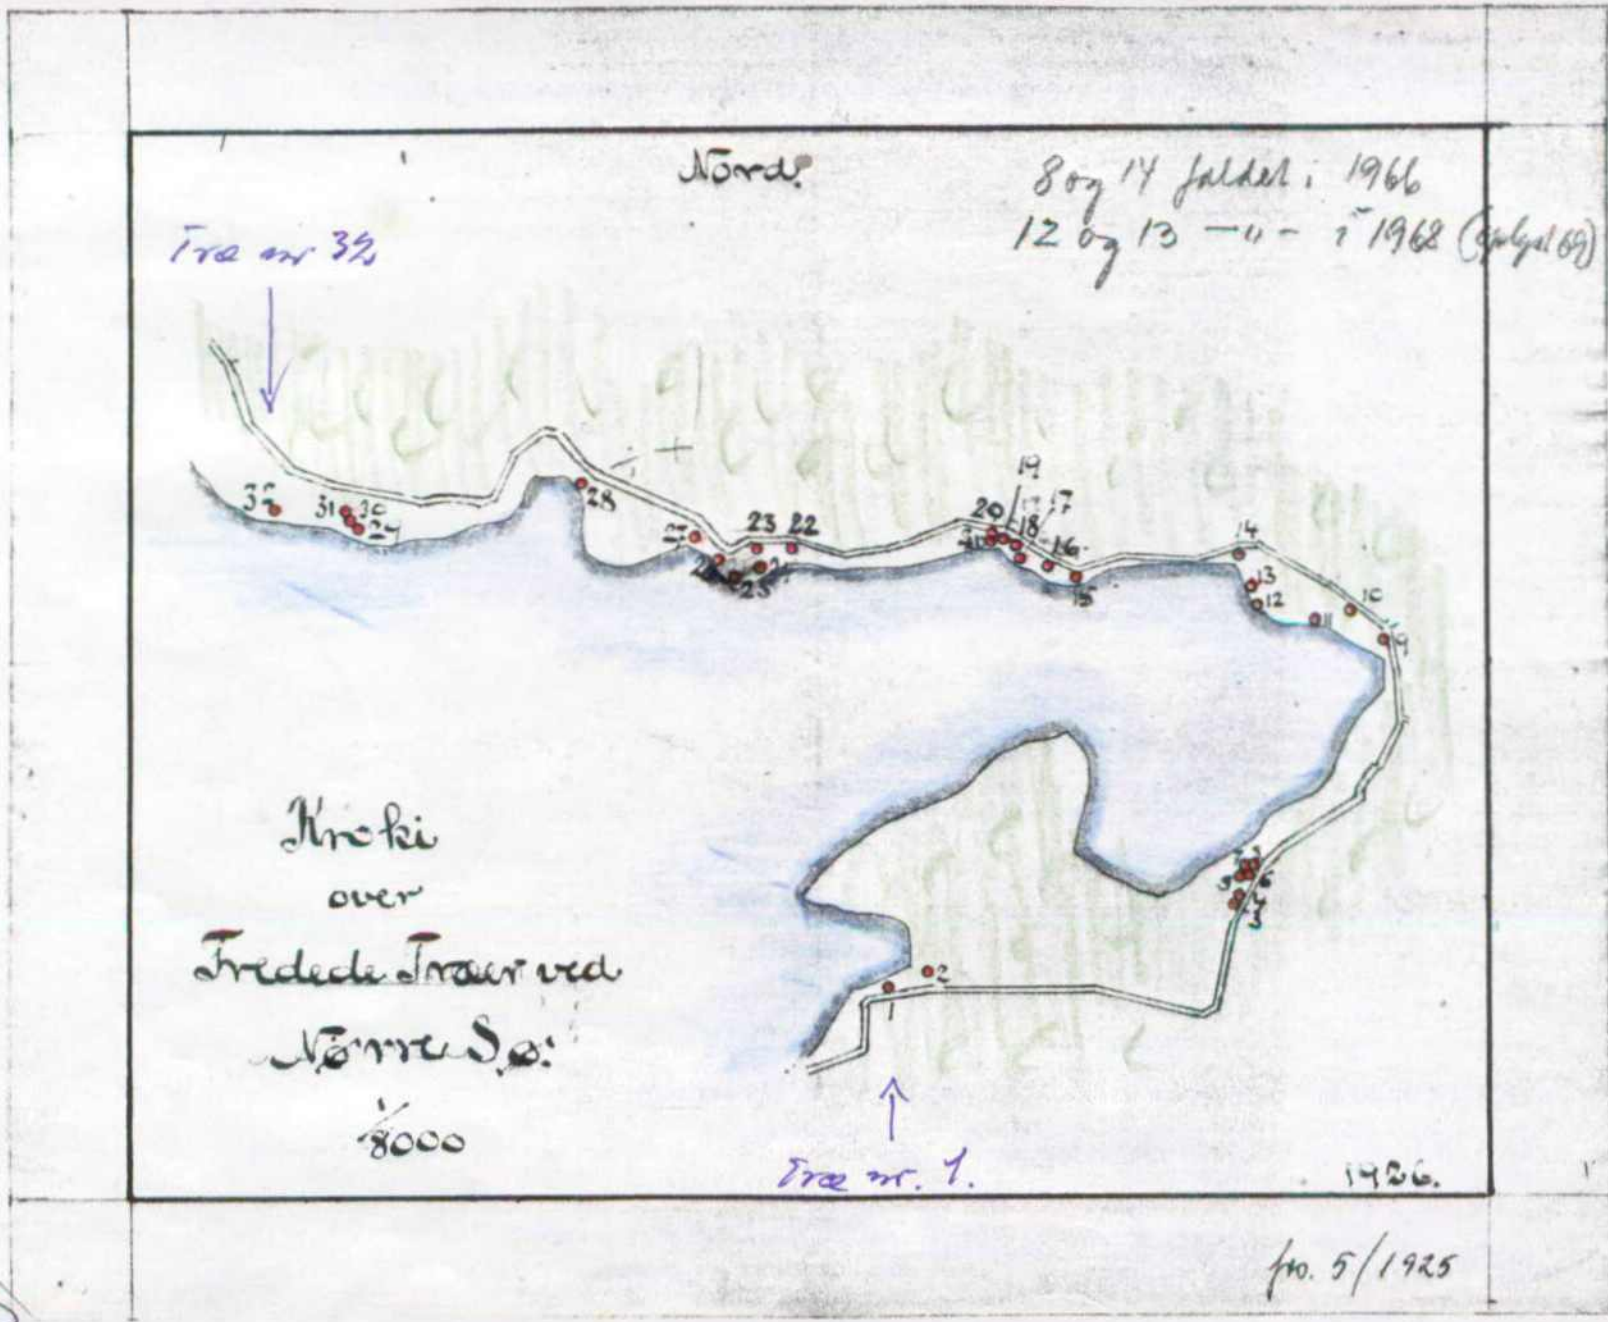 Nord.
8 og 14 faldet i 1966
12 og 13 —"— i 1968
Træ nr 32
19
20 17
32 31 30 28 23 22 18
29 27 16
25 15
14
13
12
11
10
9
7
5 6
4
3
2
1
Kroki
over
Fredede Træer ved
Nørre Sø:
1/8000
Træ nr. 1.
1926.
fro. 5/1925